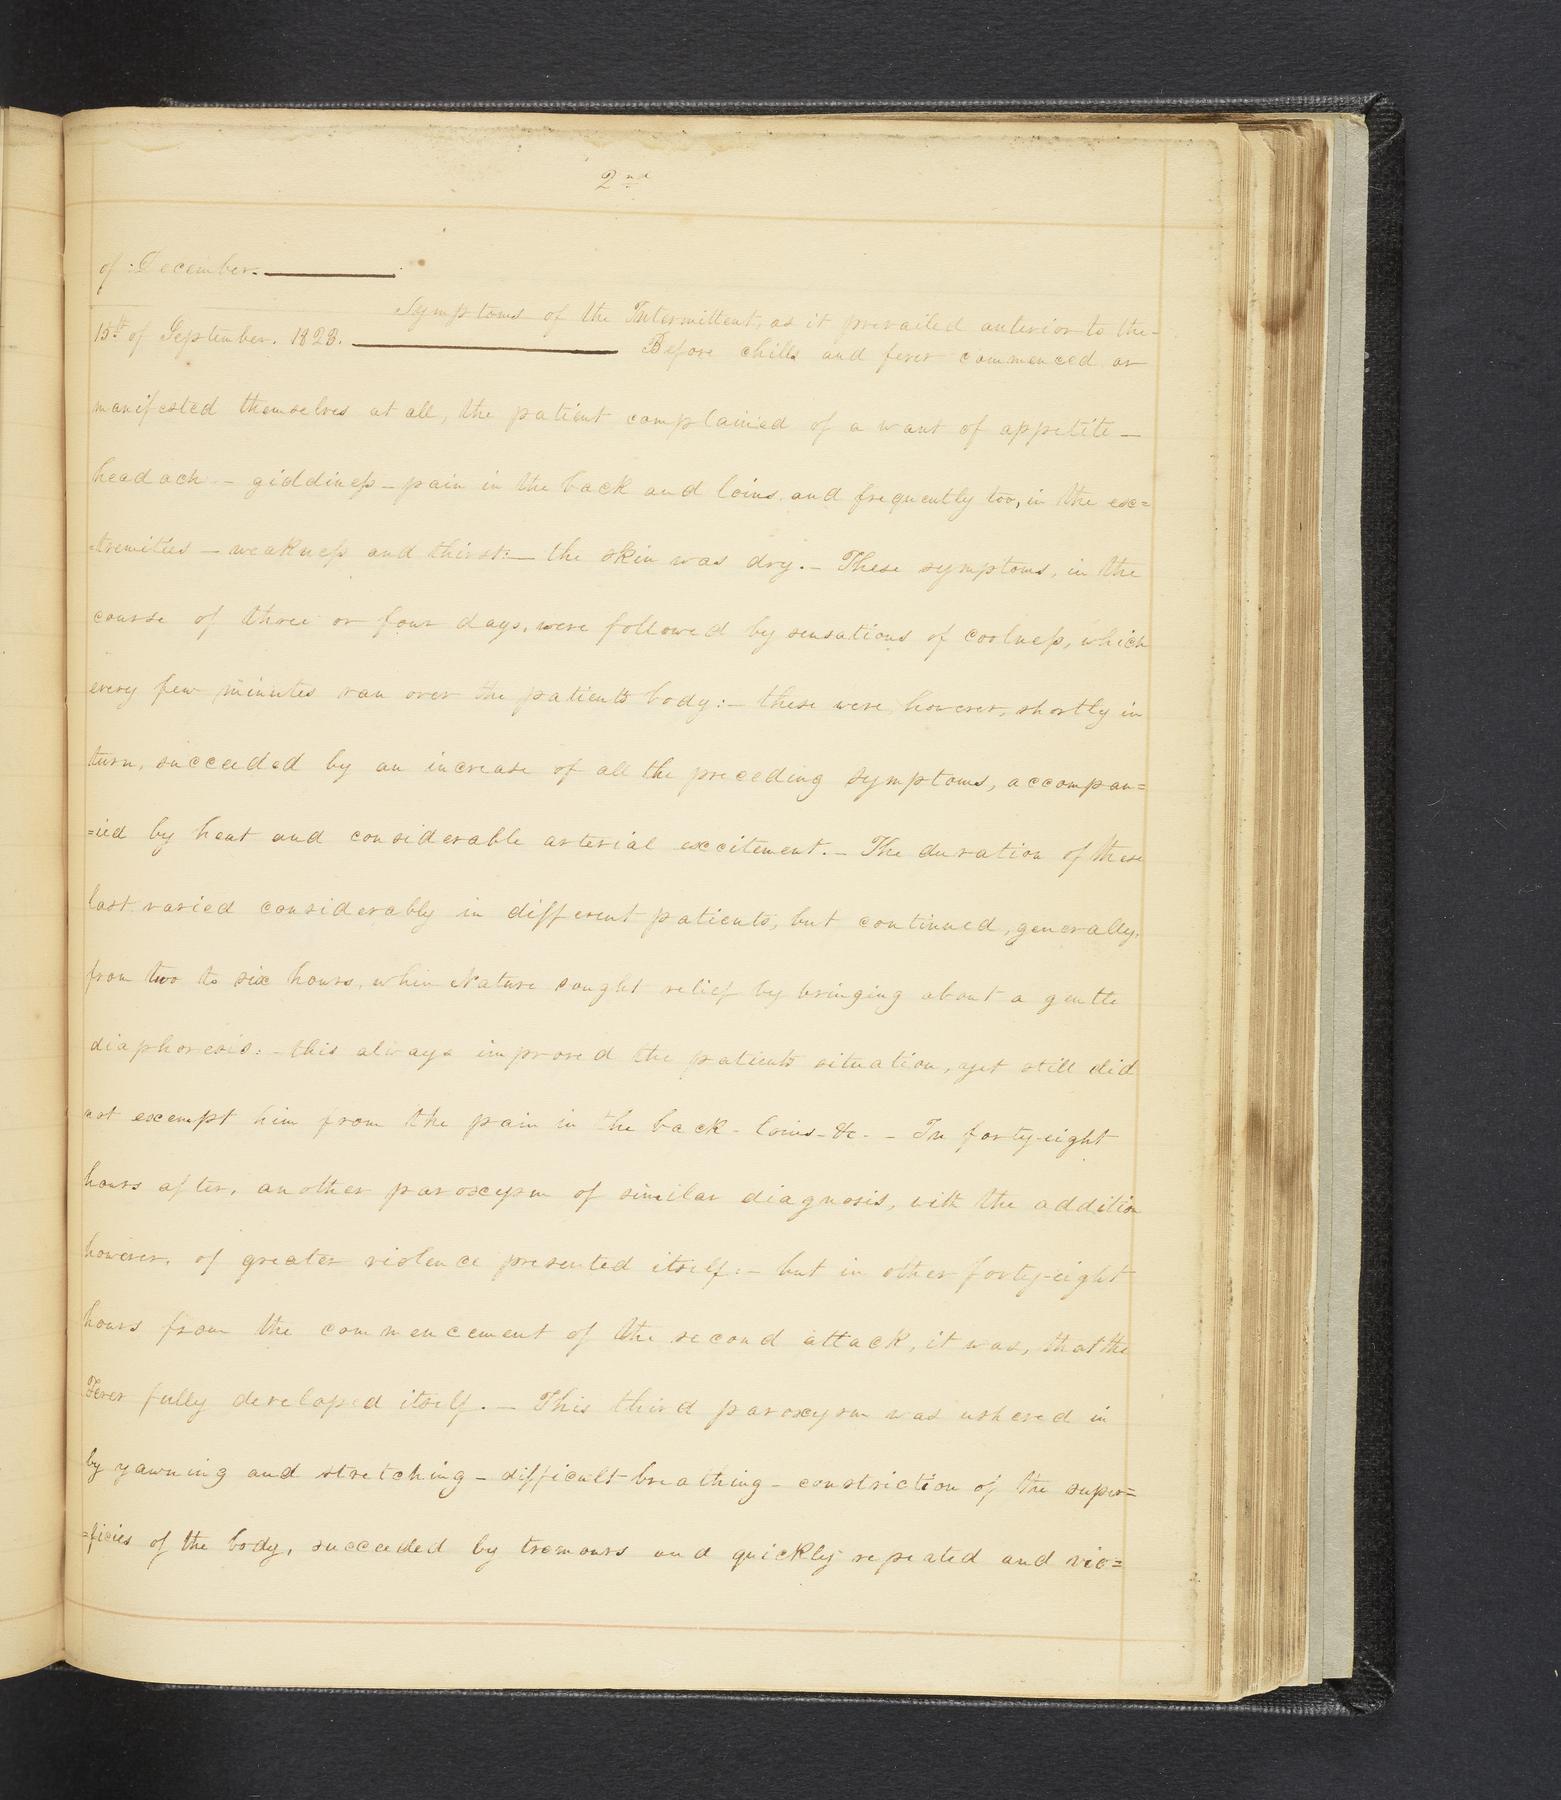 2nd
of December.
Symptoms of the Intermittent, as it prevailed anterior to the
15th of September. 1823. Before chills and fever commenced or
manifested themselves at all, the patient complained of a want of appetite —
headach — giddineſs — pain in the back and loins and frequently too, in the ex=
=tremities — weakneſs and thirst: — the skin was dry. — These symptoms, in the
course of three or four days, were followed by sensations of coolneſs, which
every few minutes ran over the patient's body: — these were, however, shortly in
turn, succeeded by an increase of all the preceding symptoms, accompan=
=ied by heat and considerable arterial excitement. — The duration of these
last varied considerably in different patients, but continued, generally,
from two to six hours, when Nature sought relief by bringing about a gentle
diaphoresis: — this always improved the patients situation, yet still did
not exempt him from the pain in the back - loins - &c. — In forty-eight
hours after, another paroxysm of similar diagnosis, with the addition
however, of greater violence presented itself: — but in other forty-eight
hours from the commencement of the second attack, it was, that the
Fever fully developed itself. — This third paroxysm was ushered in
by yawning and stretching — difficult breathing — constriction of the super=
=ficies of the body, succeeded by tremours and quickly repeated and vio=